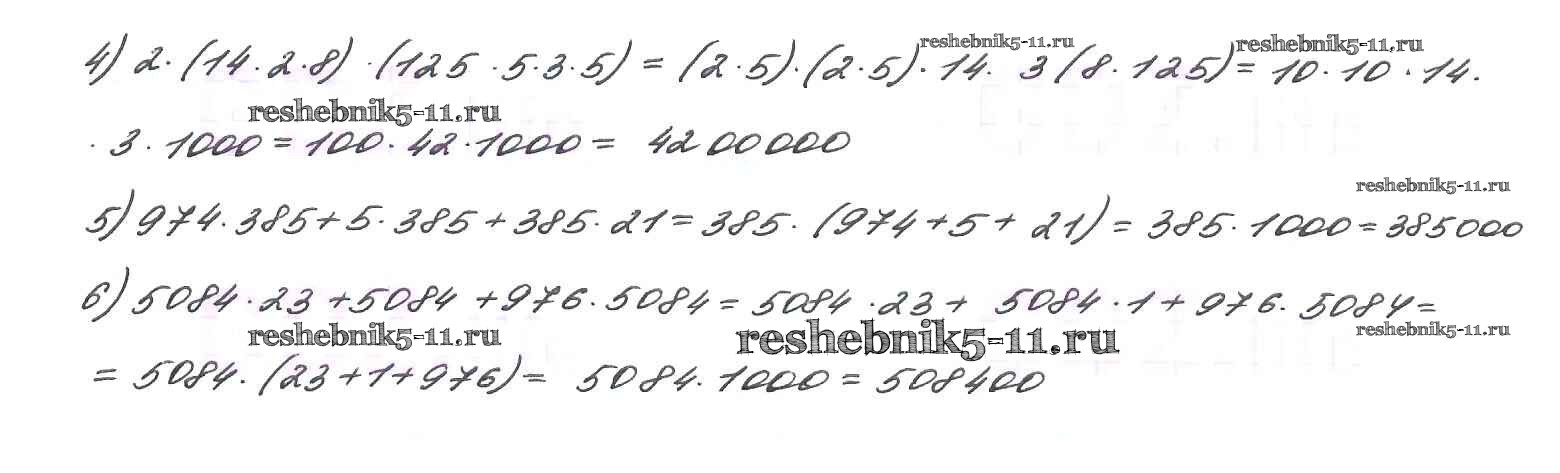 4) 2·(14·2·8)·(125·5·3·5) = (2·5)·(2·5)·14· 3(8·125) = 10·10·14·
reshebnik5-11.ru
reshebnik5-11.ru
reshebnik5-11.ru
·3·1000 = 100·42·1000 = 4200000
reshebnik5-11.ru
5) 974·385+5·385+385·21 = 385·(974+5+21) = 385·1000 = 385000
6) 5084·23+5084+976·5084 = 5084·23+ 5084·1+976·5084=
reshebnik5-11.ru
reshebnik5-11.ru
reshebnik5-11.ru
= 5084·(23+1+976) = 5084·1000 = 508400